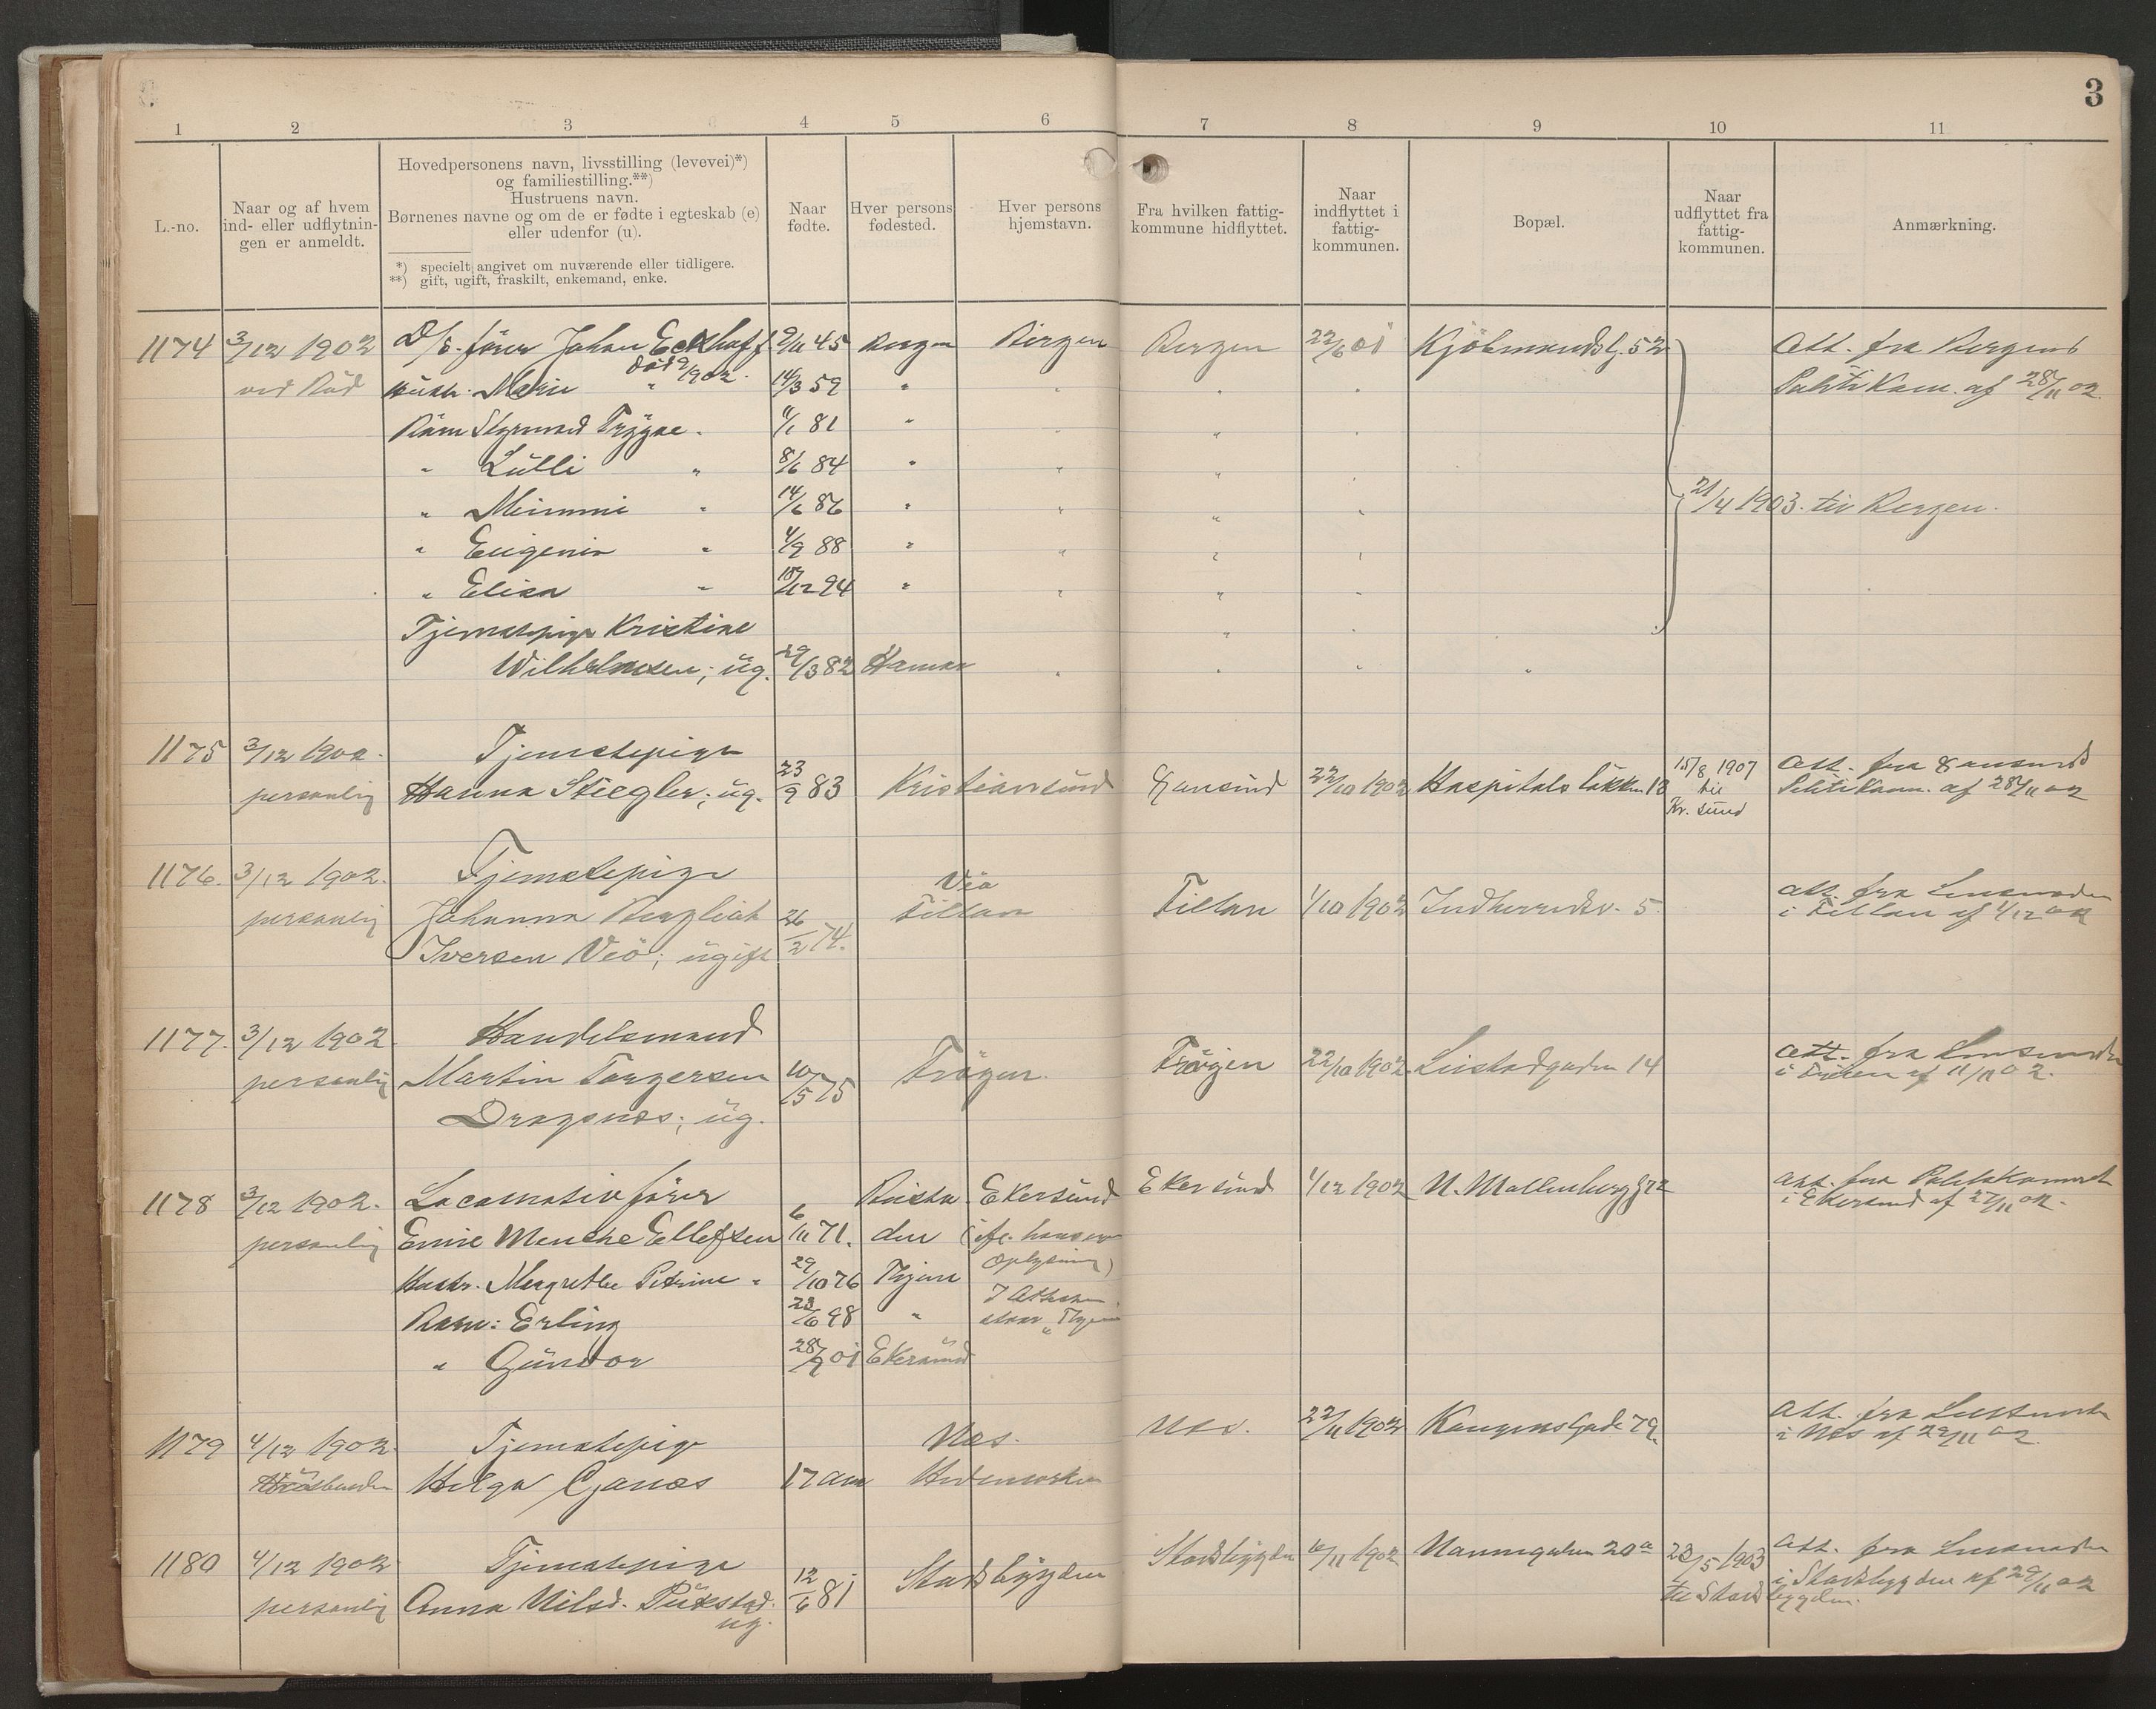 3
1 2 3 4 5 6 7 8 9 10 11
L.-no.
Naar og af hvem ind- eller udflytningen er anmeldt.
Hovedpersonens navn, livsstilling (levevei)*)
og familiestilling.**)
Hustruens navn.
Børnenes navne og om de er fødte i egteskab (e)
eller udenfor (u).
*) specielt angivet om nuværende eller tidligere.
**) gift, ugift, fraskilt, enkemand, enke.
Naar fødte.
Hver persons fødested.
Hver persons hjemstavn.
Fra hvilken fattigkommune hidflyttet.
Naar indflyttet i fattigkommunen.
Bopæl.
Naar udflyttet fra fattigkommunen.
Anmærkning.
1174 3/12 1902 D/S. fører Johan Eckhoff 9/11 45 Bergen Bergen Bergen 22/6 01 Kjøbmandsg. 52 Att. fra Bergens
ved Bud Hustr. Marie " 14/3 59 " " " " Politikam. af 28/11 02.
død 1902
Børn Sigmund Trygve. 81 " " " "
" Lulli " 8/6 84 " " " "
" Mimmi " 14/6 86 " " " " 21/4 1903 til Bergen.
" Eugenia " 4/9 88 " " " "
" Elisa " 12 94 " " " "
Tjenestepige Kristine " "
Wilhelmsen; ug. 29/3 82 Hamar " " " "
1175 3/12 1902. Tjenestepige 15/8 1907 Att. fra
personlig Hanna Stiegler; ug. 23/9 83 Kristiansund 22/10 1902 Hospitalsløkken 18 til Politikam. af 28/11 02
Kr. sund
1176. 3/12 1902. Tjenestepige Viø Fillan 1/10 1902 Indherredsv. 5. Att. fra Lensmanden
personlig Johanna 26/2 74. Fillan i Fillan af 1/12 02
Iversen Viø; ugift
1177. 3/12 1902 Handelsmand
personlig Martin Torgersen 10/5 75 Frøyen. Frøyen 22/10 1902 14 Att. fra Lensmanden
Dragsnes; ug. i Frøien af 11/11 02.
1178 3/12 1902. Locomotivfører 6/11 71. Ekersund Ekersund 1/12 1902 N. Møllenbergg. 72 Att. fra Politikammeret
personlig Emil Menche Ellefsen den (ifl. hans egen i Ekersund af 27/11 02.
Hustr. Margrethe Petrine " 29/10 76 Thjem oplysning)
Barn: Erling 98 " I Attesten
" Gunvor 28/9 01 Ekersund staar "
1179 4/12 1902. Tjenestepige Næs. Næs. 22/11 1902 Kongensgade 79. Att. fra Lensmanden
Helga 17 aar Hedemarken i Næs af 29/11 02.
1180 4/12 1902 Tjenestepige Stadsbygden 11 1902 Nannagaden 20a 23/5 1903 Att. fra Lensmanden
personlig Anna Nilsd. Pukstad. 12/6 81 Stadsbygden til Stads- i Stadsbygden af 29/11 02
ug. bygden.